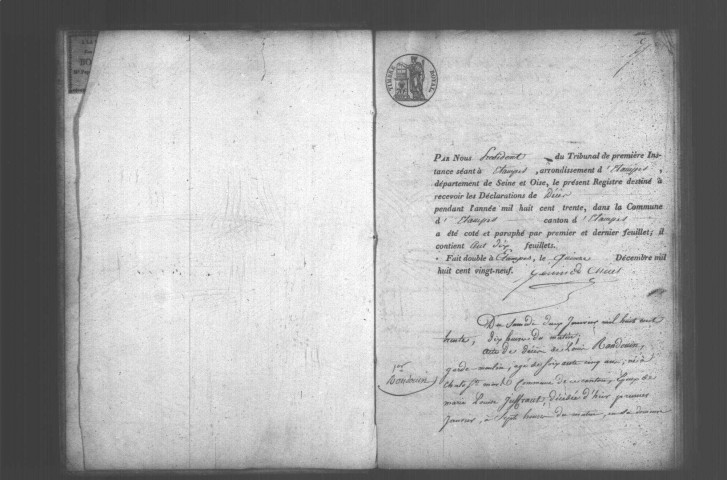 TIMBRE ROYAL
PAR NOUS Président du Tribunal de première Ins-
tance séant à Etampes, arrondissement d'Etampes,
département de Seine et Oise, le présent Registre destiné à
recevoir les Déclarations de Décès
pendant l'année mil huit cent trente, dans la Commune
d'Etampes canton d'Etampes
a été coté et paraphé par premier et dernier feuillet; il
contient dix feuillets.
Fait double à Etampes, le quinze Décembre mil
huit cent vingt-neuf.
Du Samedi deux Janvier mil huit cent
trente, dix heures du matin;
acte de décès de Baudouin,
garde-moulin, agé de soixante cinq ans; né à
Chalo St mard Commune de ce canton, Epoux de
marie Louise décédé d'hier premier
Janvier, à sept heures du matin, en sa demeure
1er
Baudouin